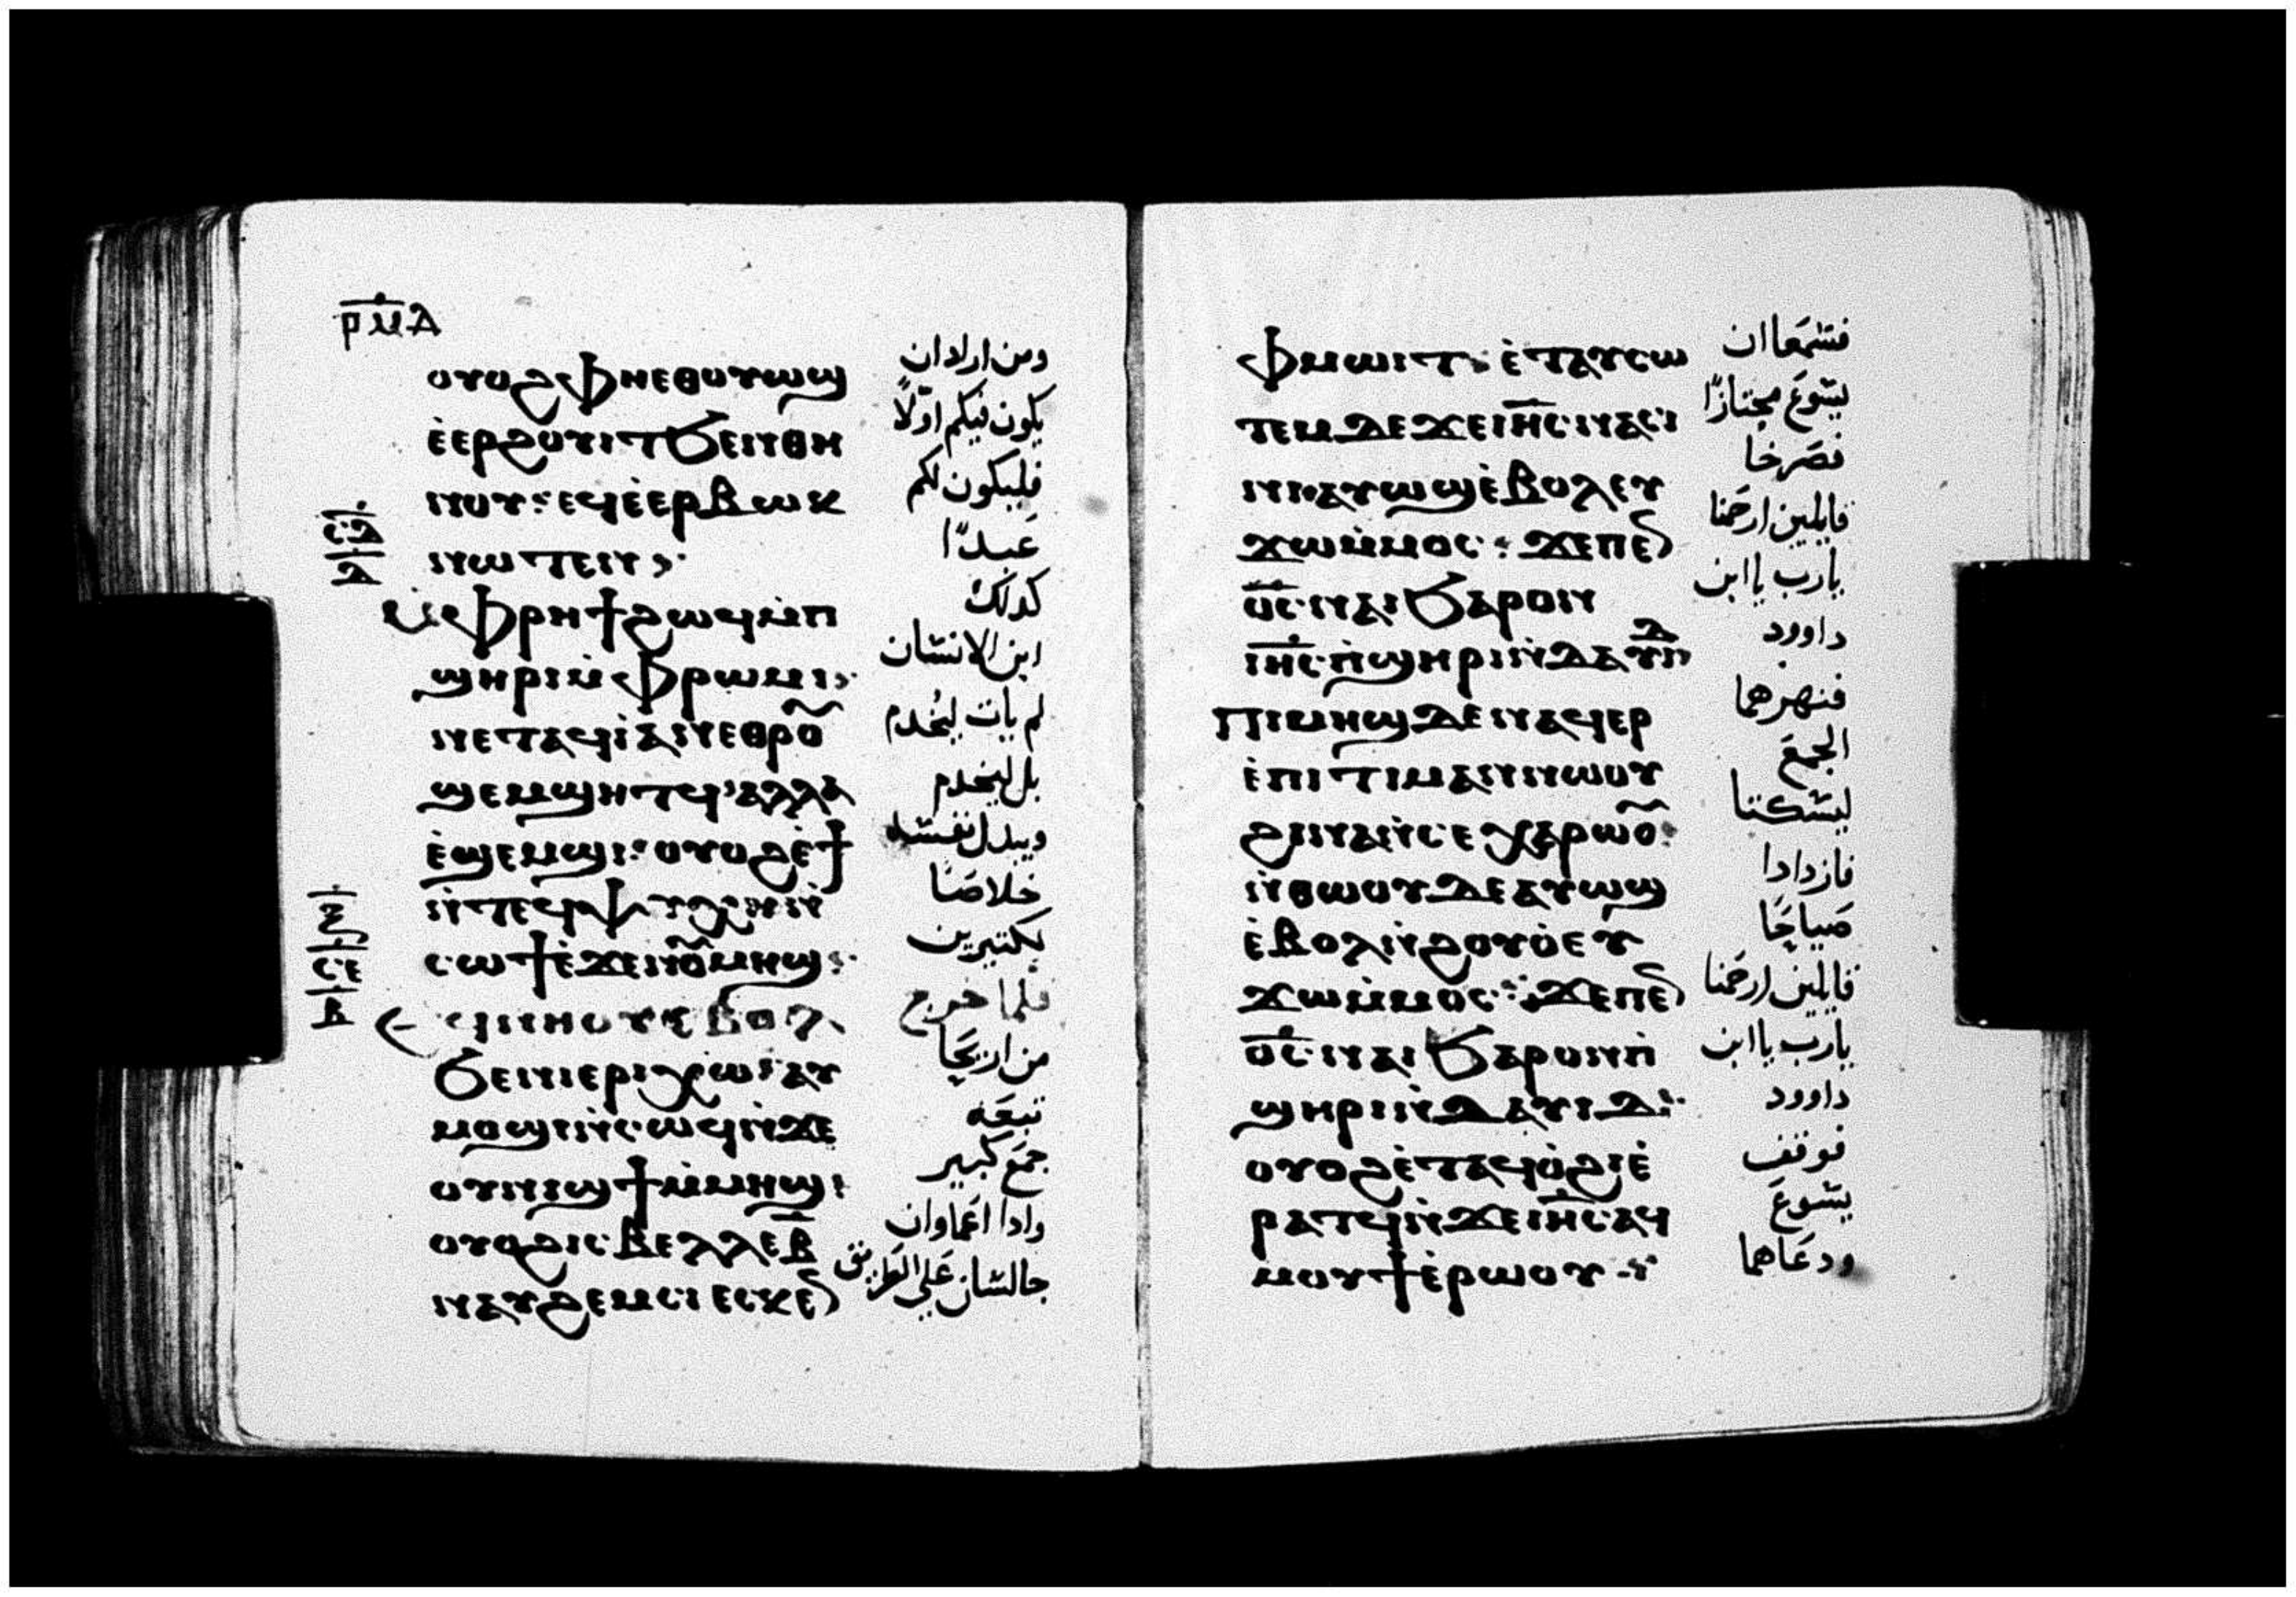 ⲣⲙⲇ
ⲟⲩⲟϩ ⲫⲏⲉⲑⲟⲩⲱϣ
ⲉ̀ⲉⲣϩⲟⲩⲓⲧ ϧⲉⲛⲑⲏ
ⲛⲟⲩ: ⲉϥⲉ̀ⲉⲣⲃⲱⲕ
ⲛⲱⲧⲉⲛ
ⲙ̀ⲫⲣⲏϯ ϩⲱϥ ⲙ̀ⲡ
ϣⲏⲣⲓ ⲙ̀ⲫⲣⲱⲙⲓ
ⲛⲉⲧⲁϥⲓ̀ ⲁⲛ ⲉⲑⲣⲟ̃
ϣⲉⲙϣⲏⲧϥ ⲁⲗⲗⲁ
ⲉ̀ϣⲉⲙϣⲓ: ⲟⲩⲟϩ ⲉ̀ϯ
ⲛ̀ⲧⲉϥⲯⲩⲭⲏ ⲛ̀
ⲥⲱϯ ⲉ̀ϫⲉⲛⲟ̃ⲙⲏϣ:
ⲉϥⲛⲏⲟⲩ ⲉ̀ⲃⲟⲗ
ϧⲉⲛ ⲓⲉⲣⲓⲭⲱ ⲁⲩ
ⲙⲟϣⲓ ⲛ̀ⲥⲱϥ ⲛ̀ϫⲉ
ⲟⲩⲛⲓϣϯ ⲙ̀ⲙⲏϣ:
ⲟⲩⲟϩ ⲓⲥ ⲃⲉⲗⲗⲉ ⲃ̅
ⲛⲁⲩϩⲉⲙⲥⲓ ⲉⲥⲕⲉⲛ
ومن اراد ان
يكون فيكم اوّلاً
فليكون لكم
عَبداً
كدلك
ابن الانسَان
لم يات ليُخدم
بل ليخدم
ويبدل نفسَه
خلاصًا
لكتيرين
فلما خرج
من اريحَا
تبعَه
جمعَ كبير
وادا اعَماوان
جالسَان عَلي الطريق
ⲫⲙⲱⲓⲧ: ⲉ̀ⲧⲁⲩⲥⲱ
ⲧⲉⲙ ⲇⲉ ϫⲉ ⲓⲏ̅ⲥ ⲛⲁⲥⲓ
ⲛⲓ ⲛⲁⲩⲱϣ ⲉ̀ⲃⲟⲗ ⲉⲩ
ϫⲱⲙ̀ⲙⲟⲥ: ϫⲉ ⲡⲉⲛ
ⲟ̅ⲥ̅ ⲛⲁⲓ ϧⲁⲣⲟⲛ
ⲓⲏ̅ⲥ ⲡ̀ϣⲏⲣⲓ ⲛ̀ⲇⲁⲩⲓⲇ
ⲡⲓⲙⲏϣ ⲇⲉ ⲛⲁϥⲉⲣ
ⲉ̀ⲡⲓⲧⲓⲙⲁⲛ ⲛⲱⲟⲩ
ϩⲓⲛⲁ ⲛ̀ⲥⲉⲭⲁⲣⲱⲟ̃
ⲛ̀ⲑⲱⲟⲩ ⲇⲉ ⲁⲩⲱϣ
ⲉ̀ⲃⲟⲗ ⲛ̀ϩⲟⲩⲟ̀ ⲉⲩ
ϫⲱⲙ̀ⲙⲟⲥ: ϫⲉ ⲡⲉⲛ
ⲟ̅ⲥ̅ ⲛⲁⲓ ϧⲁⲣⲟⲛ ⲡ̀
ϣⲏⲣⲓ ⲛ̀ⲇⲁⲩⲓⲇ
ⲟⲩⲟϩ ⲉ̀ⲧⲁϥⲟ̀ϩⲓ ⲉ̀
ⲣⲁⲧϥ ⲛ̀ϫⲉ ⲓⲏ̅ⲥ ⲁϥ
ⲙⲟⲩϯ ⲉ̀ⲣⲱⲟⲩ
فسَمعَا ان
يسوعَ مجتازًا
فصَرخا
قايلين ارحَمنا
يارب يا ابن
داوود
فنهرهما
الجمعَ
ليسَكتا
فازدادا
صَياحًا
قايلين ارحَمنا
يارب يا ابن
داوود
فوقف
يسَوعَ
ودعَاهما